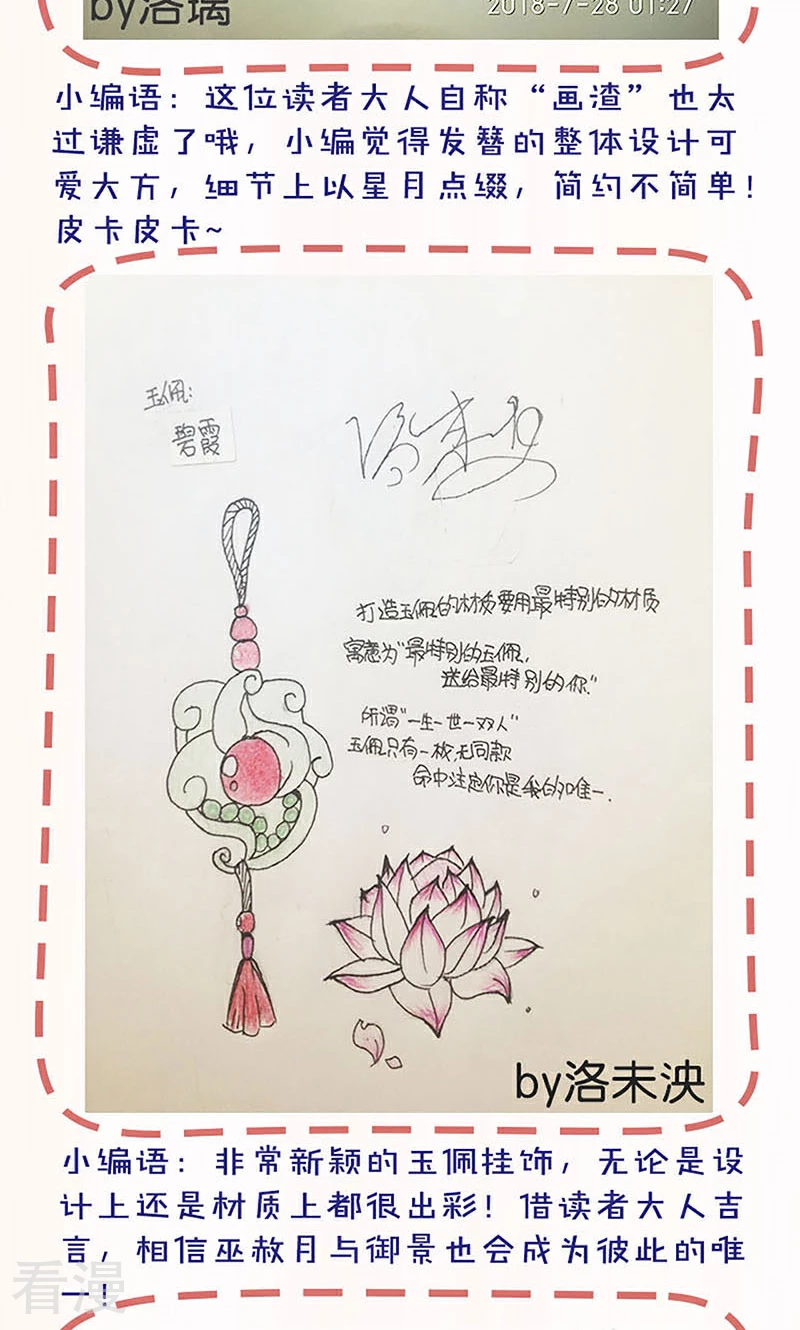 by洛璃
2018-7-28 01:27
小编语：这位读者大人自称“画渣”也太
过谦虚了哦，小编觉得发簪的整体设计可
爱大方，细节上以星月点缀，简约不简单！
皮卡皮卡~
玉佩：
碧霞
洛未泱
打造玉佩的材质要用最特别的材质
寓意为“最特别的玉佩，
送给最特别的你”
所谓“一生一世一双人”
玉佩只有一枚，无同款
命中注定你是我的唯一.
by洛未泱
小编语：非常新颖的玉佩挂饰，无论是设
计上还是材质上都很出彩！借读者大人吉
言，相信巫赦月与御景也会成为彼此的唯
一！
看漫